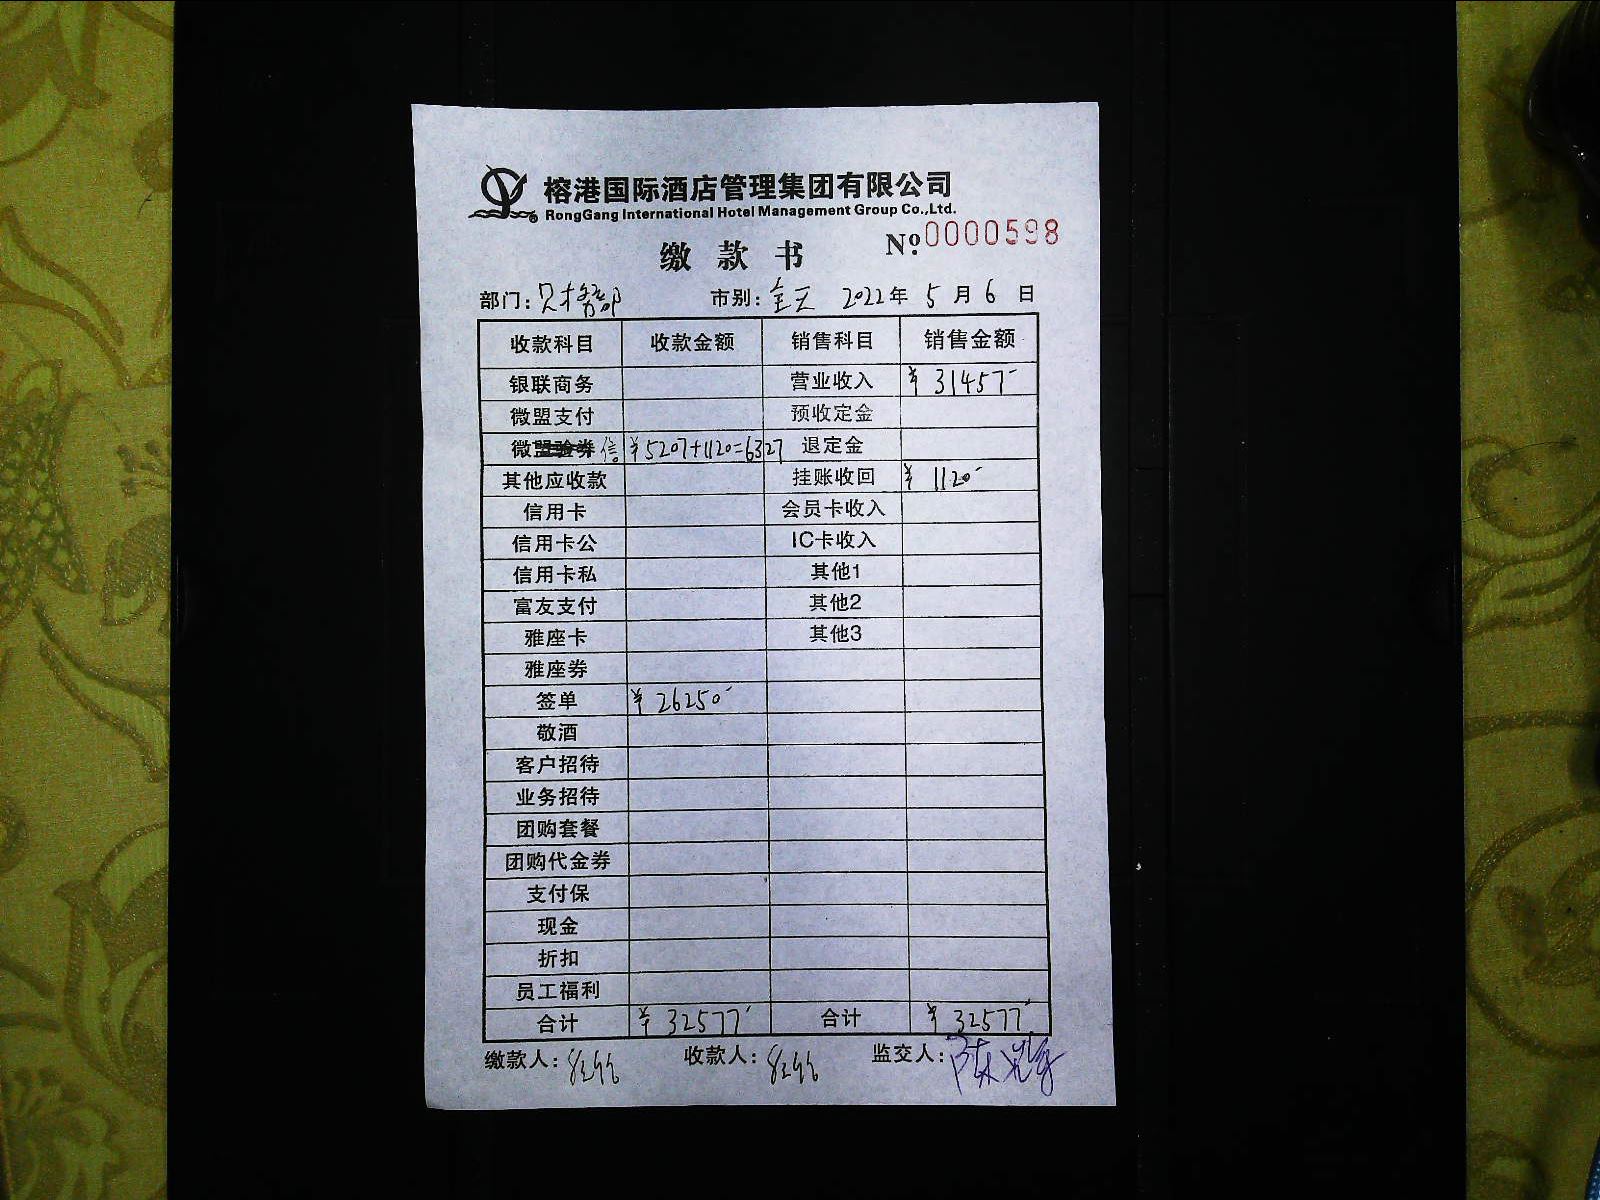 榕港国际酒店管理集团有限公司
RongGang International Hotel Management Group Co.,Ltd.
缴款书 №.0000598
部门:财务部 市别:全天 2022年 5月 6日
收款科目 收款金额 销售科目 销售金额
银联商务 营业收入 ¥ 31457-
微盟支付 预收定金
微盟验券 信 ¥5207+1120=6327 退定金
其他应收款 挂账收回 ¥ 1120-
信用卡 会员卡收入
信用卡公 IC卡收入
信用卡私 其他1
富友支付 其他2
雅座卡 其他3
雅座券
签单 ¥ 26250-
敬酒
客户招待
业务招待
团购套餐
团购代金券
支付保
现金
折扣
员工福利
合计 ¥ 32577- 合计 ¥ 32577-
缴款人: 收款人: 监交人:陈